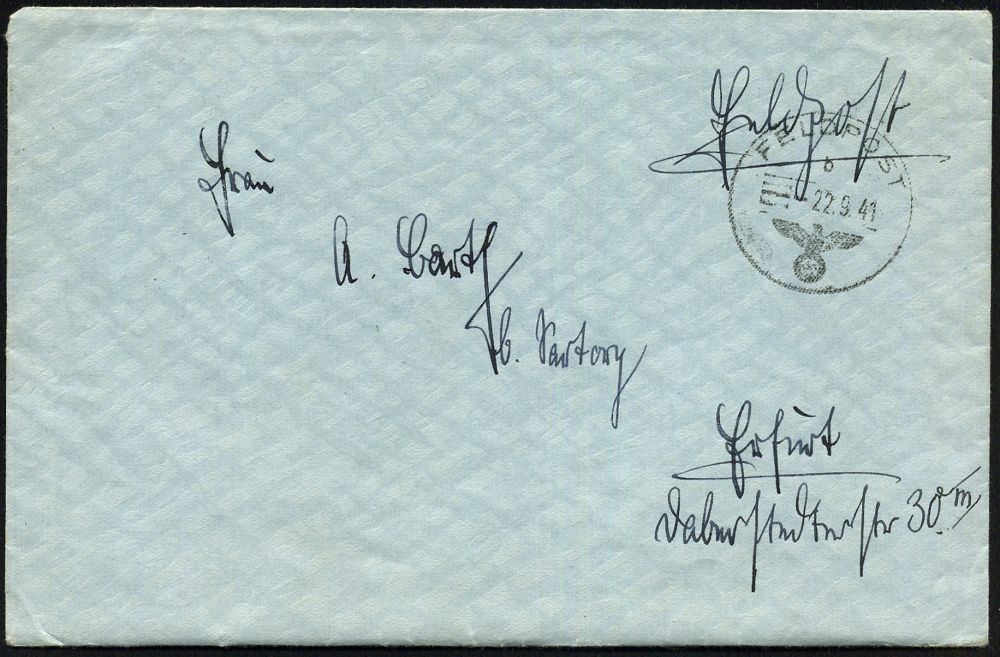 Feldpost
FELDPOST
b
22.9.41
Frau
A. Barth
b. Sartory
Erfurt
Daberstedterstr 30